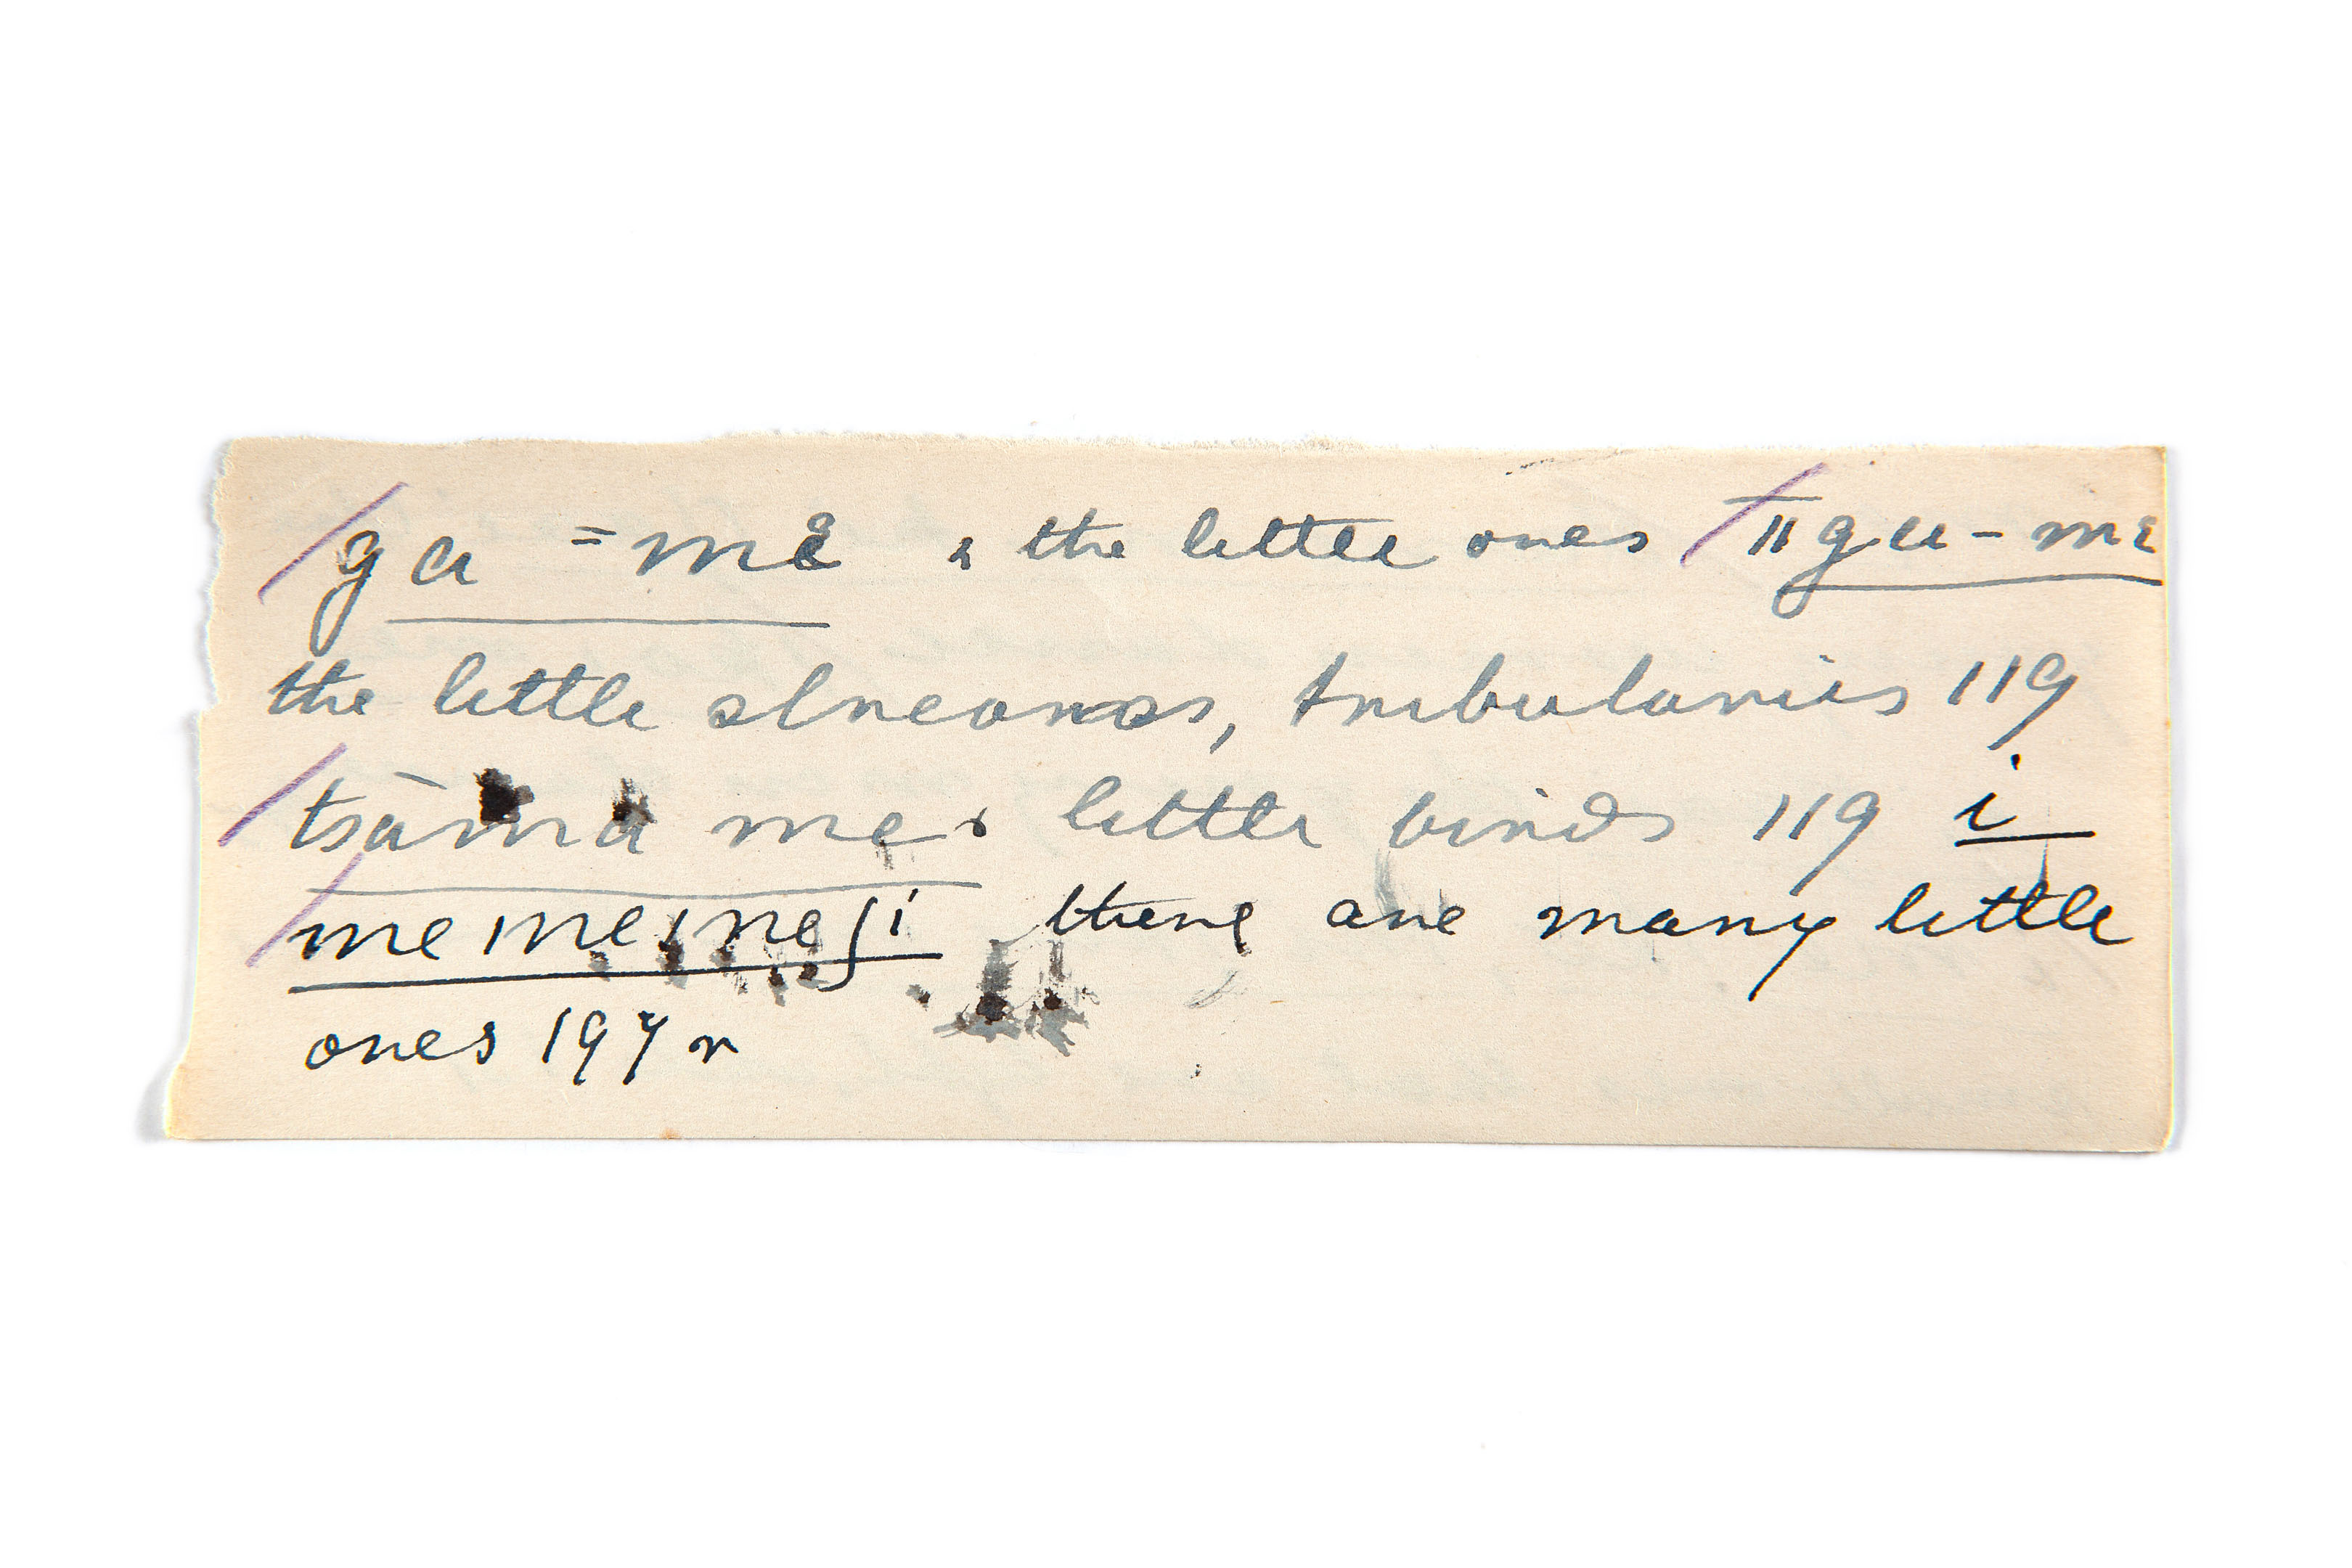 ga = me : the little ones ıı ga - me
the little streams, tributaries 119
tsāma me : little birds 119 i
mememeʃi there are many little
ones 197 r